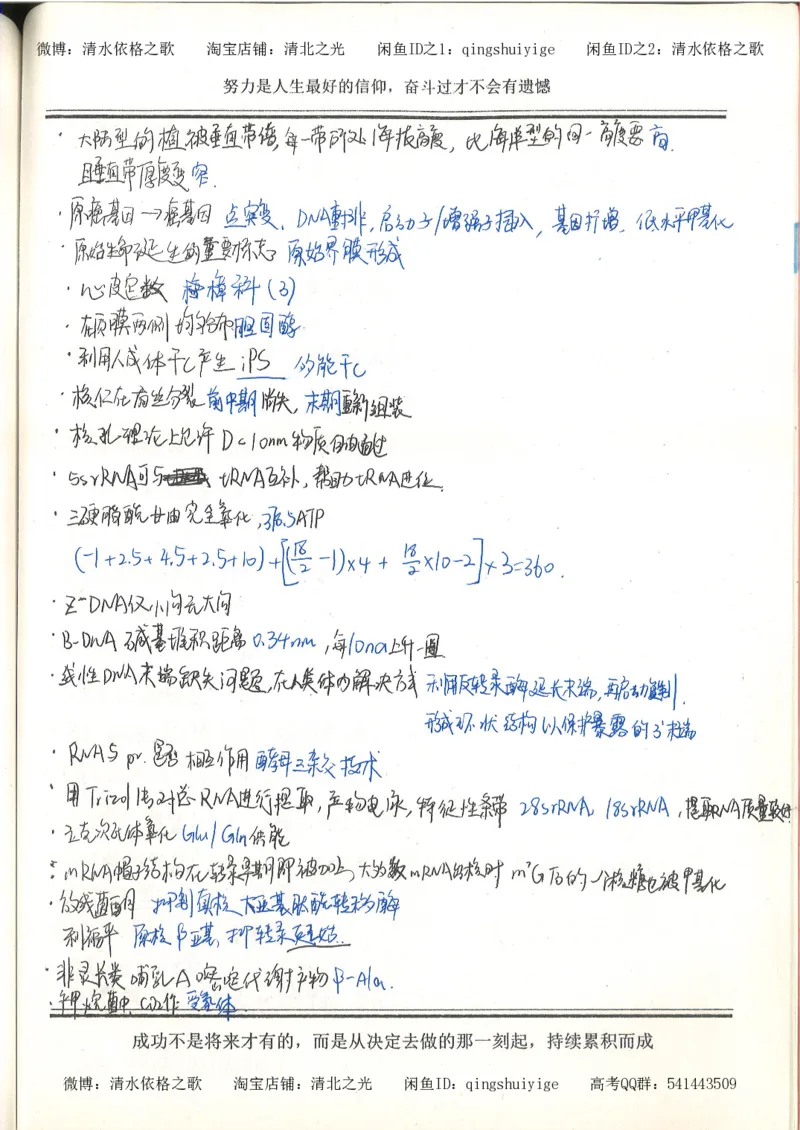 微博：清水依格之歌 淘宝店铺：清北之光 闲鱼ID之1：qingshuiyige 闲鱼ID之2：清水依格之歌
努力是人生最好的信仰，奋斗过才不会有遗憾
· 大陆型的植被垂直带谱，每一带所处海拔高度，比海洋型的同一高度要高.
且垂直带厚度变窄.
· 原癌基因→癌基因 点突变、DNA重排，启动子/增强子插入，基因扩增，低水平甲基化
· 原始生命诞生的重要标志：原始界膜形成
· 心皮定数 梅樟科（3）
· 在质膜两侧均匀分布胆固醇
· 利用人成体干C产生 iPS 的能干C
· 核仁在有丝分裂前中期消失，末期重新组装
· 核孔理论上允许 D<10nm 物质自由通过
· 5srRNA可与 tRNA互补，帮助tRNA进位.
· 三硬脂酰甘油完全氧化，ATP
(-1+2.5+4.5+2.5+10)+[(18/2 -1)×4 + 18/2 ×10-2]×3=360.
· Z-DNA仅小沟无大沟
· B-DNA 碱基堆积距离 0.34nm，每10na上升一圈
· 线性DNA末端缺失问题，在人类体内解决方式 利用反转录酶延长末端，再启动
形成环状结构以保护暴露的3'末端
· RNA与pr. 相互作用 酵母三杂交技术
· 用Trizol法对总RNA进行提取，产物电泳，特征性条带 28srRNA，18srRNA，提取RNA质量较好
· 立克次氏体氧化Glu/Gln供能
· mRNA帽子结构在转录早期即被加上，大多数mRNA出核时 m⁷G后的一个核糖也被甲基化
· 放线菌酮 抑制真核大亚基肽酰转移酶
利福平 原核β亚基，抑转录起始.
· 非灵长类哺乳A嘧啶代谢产物β-Ala.
· 甲烷菌中，CO2作受氢体.
成功不是将来才有的，而是从决定去做的那一刻起，持续累积而成
微博：清水依格之歌 淘宝店铺：清北之光 闲鱼ID：qingshuiyige 高考QQ群：541443509